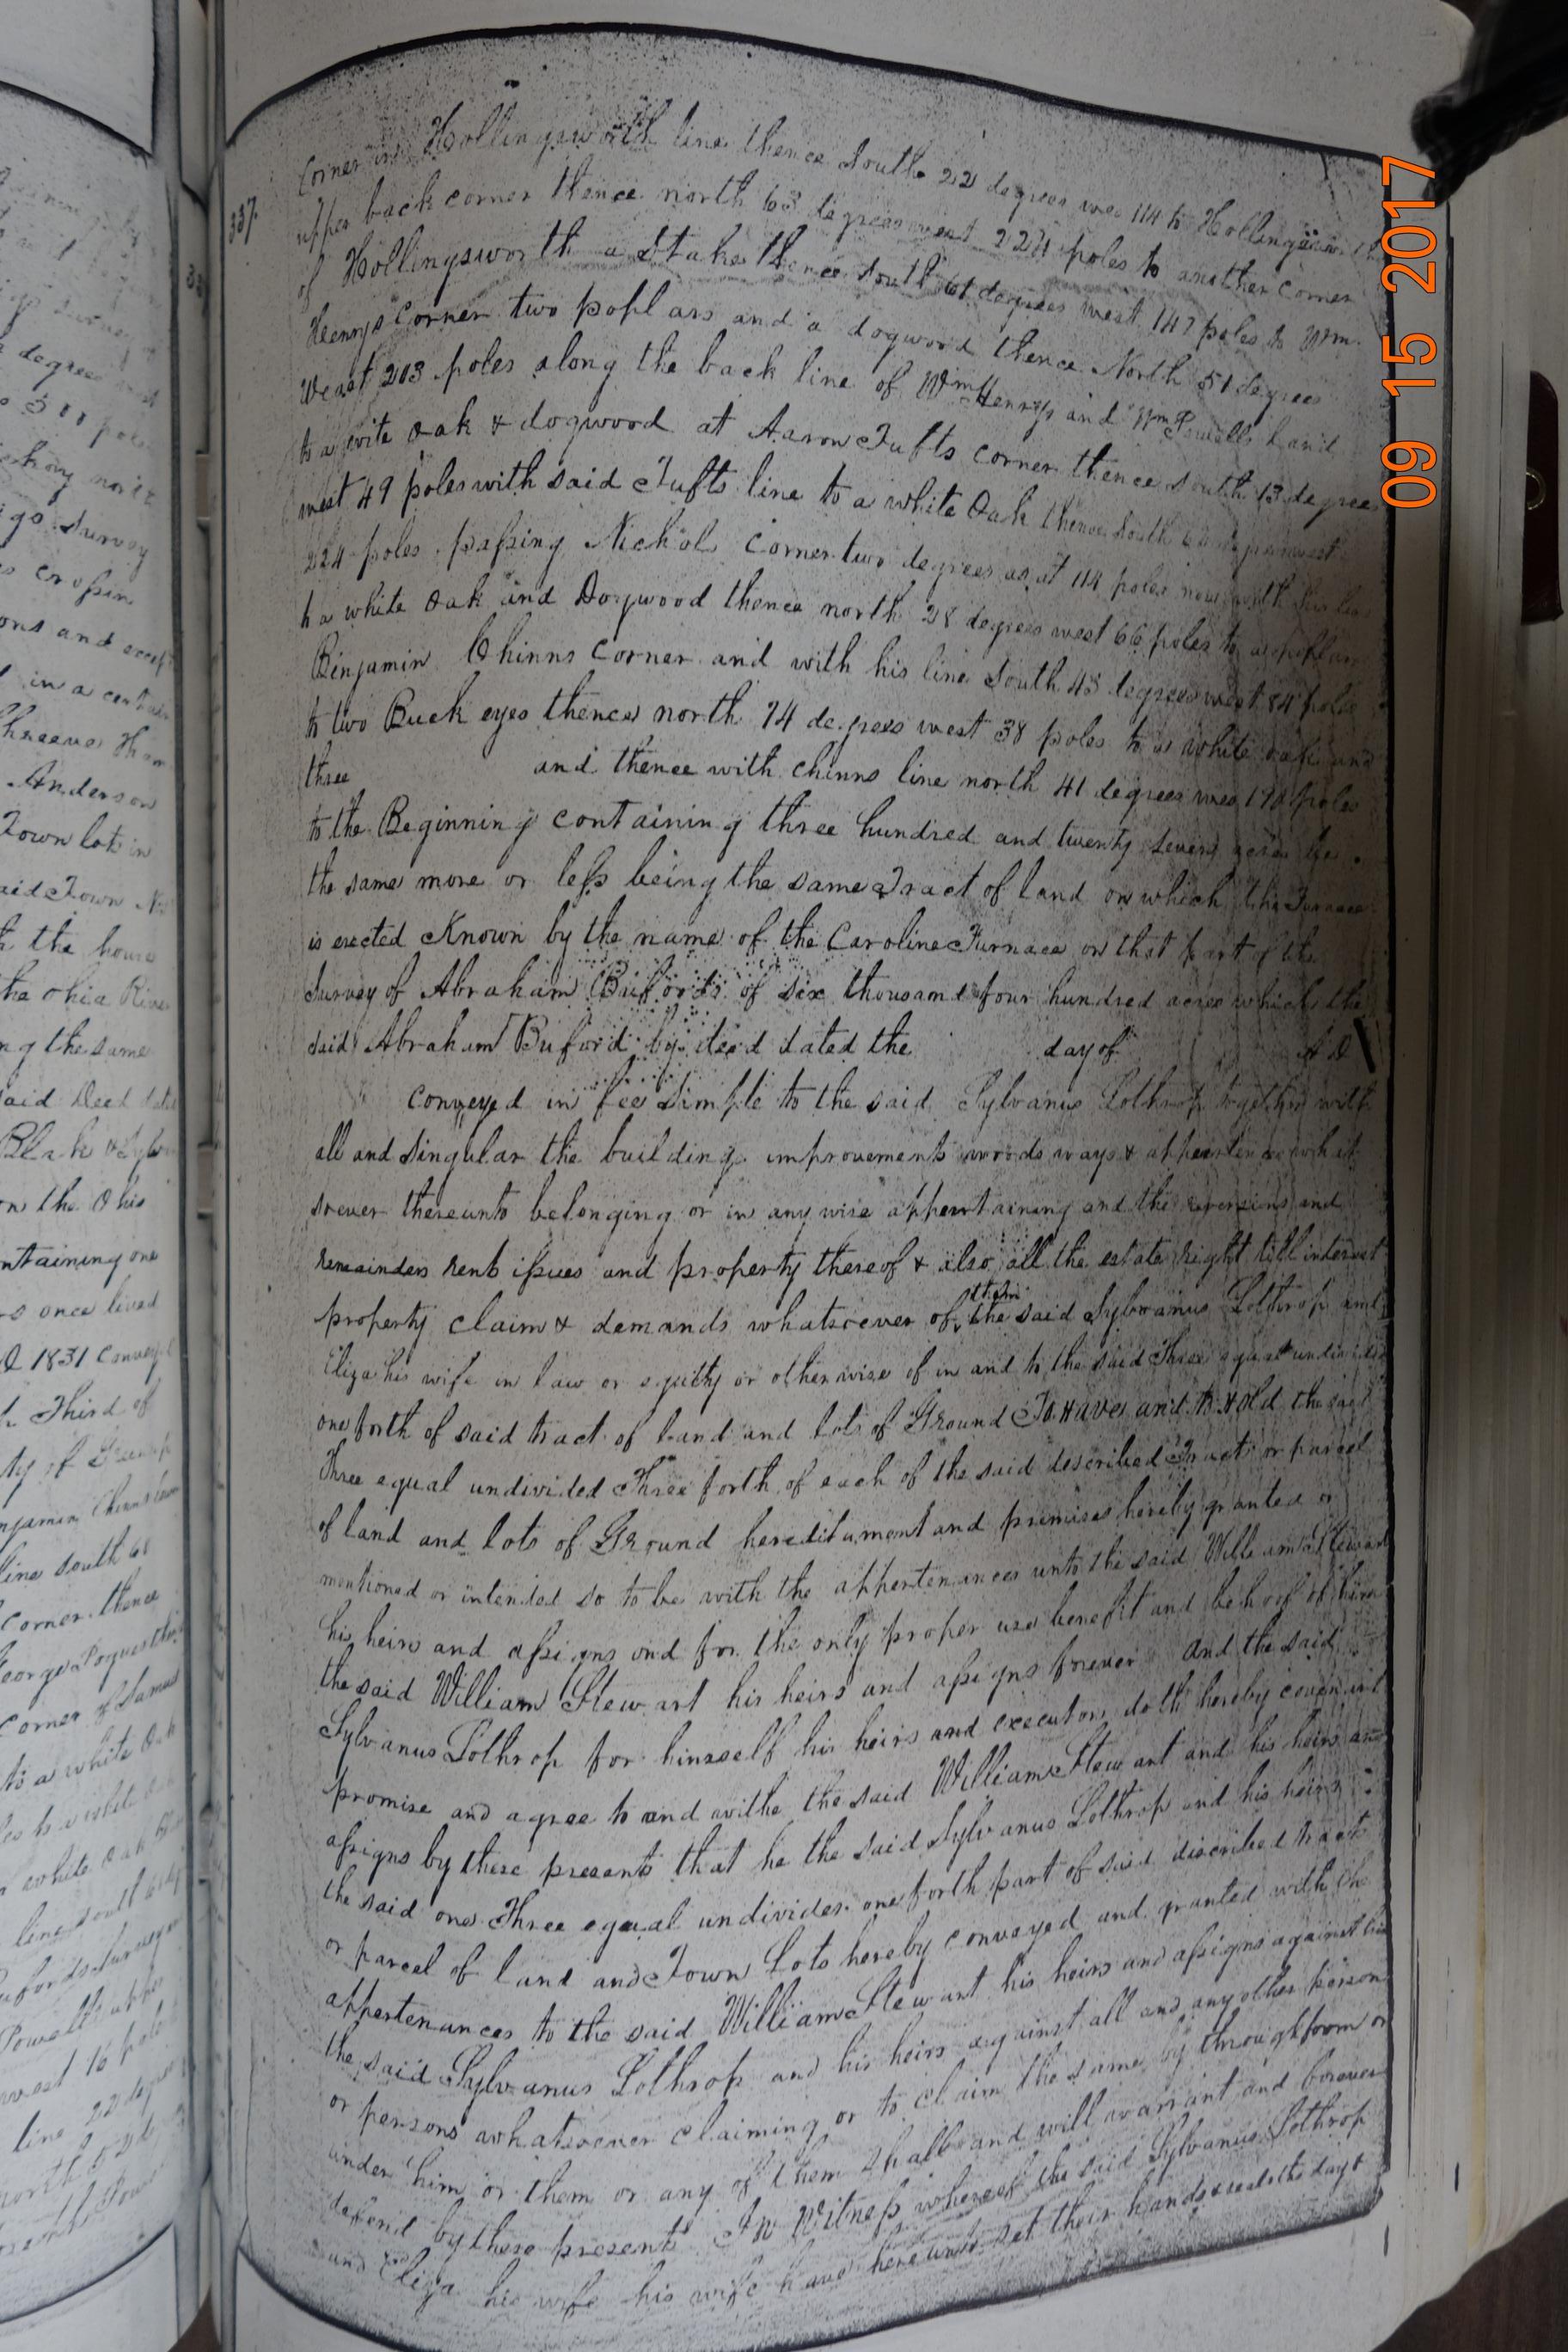 337.
Corner in Hollingsworth line thence South 22 degrees wes 114 to Hollingsworth
upper back corner thence north 63 degrees west 224 poles to another corner
of Hollingsworth a Stake thence South 61 degrees west 147 poles to Wm
Henrys Corner two poplars and a dogword thence North 51 degrees
West 203 poles along the back line of Wm Henrys and Wm Powells Land
to a wite Oak & dogwood at Aaron Tufts corner thence South 13 degrees
west 49 poles with said Tufts line to a white Oak thence South 60 degrees west
224 poles passing Nichols Corner two degrees as at 114 poles now
to a white Oak and Dogwood thence north 28 degrees west 66 poles to a poplar
Binjamin Chinns Corner and with his line South 43 degrees west 84 poles
to two Buck eyes thence north 74 degrees west 38 poles to a white oak and
three and thence with chinns line north 41 degrees wes 170 poles
to the Beginning containing three hundred and twenty seven acres be
the same more or less being the same Tract of land on which the Furnace
is erected Known by the name of the Caroline Furnace on that part of the
Survey of Abraham Bufords of six thousand four hundred acres which the
said Abraham Buford by deed dated the day of A D
conveyed in fee Simple to the said Sylvanus Lothrop together with
all and singular the building improvements woods ways & appertenance what
soever thereunto belonging or in any wise appertaining and the reversions and
remainders rents issues and property thereof & also all the estate right titll interest
property claim & demands whatsoever of them the said Sylvanus Lothrop and
Eliza his wife in law or equity or otherwise of in and to the said Three equal undivided
one forth of said tract of land and lots of Ground To Have and to Hold the said
Three equal undivided Three forth of each of the said described Tract or parcel
of land and lots of Ground hereditament and premises hereby granted or
mentioned or intended so to be with the appertenances unto the said William Stewart
his heirs and assigns and for the only proper use benefit and behoof of him
the said William Stewart his heirs and assigns forever And the said
Sylvanus Lothrop for himself his heirs and executors doth hereby covenant
promise and agree to and withe the said William Stewart and his heirs and
assigns by these presents that he the said Sylvanus Lothrop and his heirs
the said one Three equal undivides one forth part of said discribed tract
or parcel of land and Town Lots hereby conveyed and granted with the
appertenances to the said William Stewart his heirs and assigns against him
the said Sylvanus Lothrop and his heirs against all and any other person
or persons whatsoever claiming or to claim the same by through from or
under him or them or any of them Shall and will warrant and forever
defend by these presents In Witness whereof the said Sylvanus Lothrop
and Eliza his wife his wife have hereunto set their hands & seals the day &
09 15 2017
degrees
hickory
Survey
ons and except
in a certain
Anderson
Town lots in
said Town
the house
the ohio River
ng the same
said Deed
on the Ohio
ontaining one
rs once lived
D 1831 convey
Third of
ty of Greenup
line south 61
corner thence
corner of Samuel
to a white Oak
white oak
line south
west 16 poles
line 22 degrees